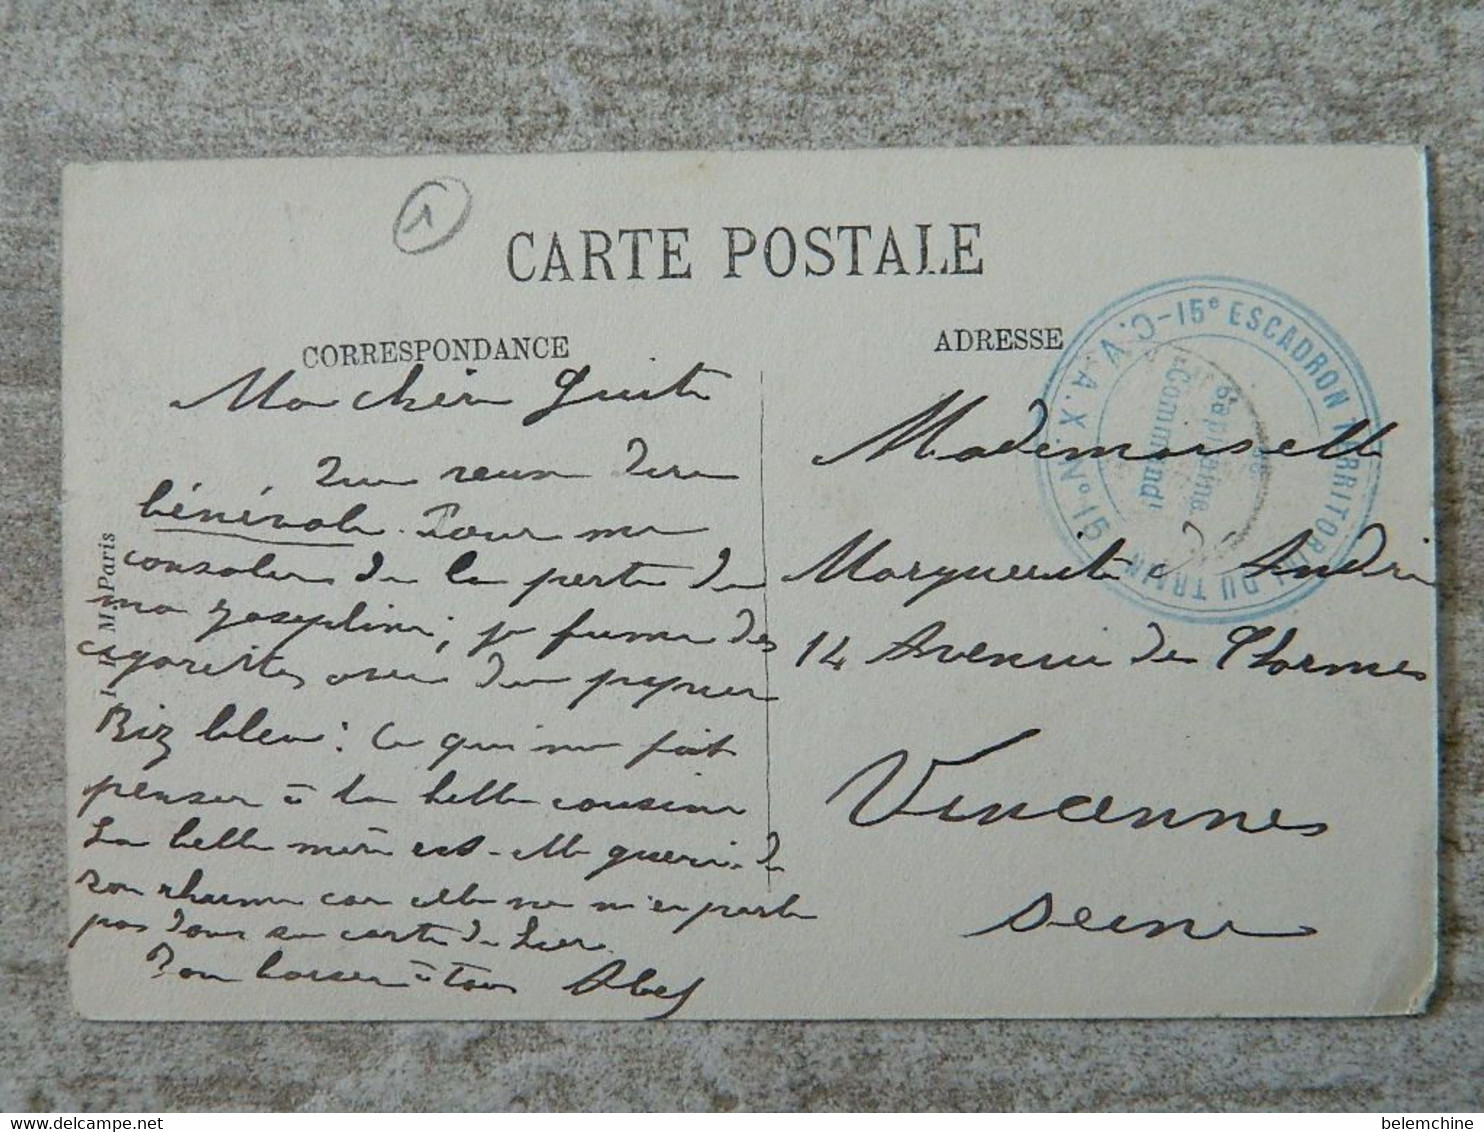 1
CARTE POSTALE
CORRESPONDANCE
ADRESSE
Ma chère Guite
Que veux dire
bénévole. Pour me
consoler de la perte de
ma Joséphine, je fume des
cigarettes avec du papier
Riz bleu : Ce qui me fait
penser à la belle cousine
La belle mère est-elle guérie de
son rhume car elle ne m'en parle
pas dans sa carte de hier.
Bon baiser à tous Abel
Mademoiselle
Marguerite André
14 Avenue des Charmes
Vincennes
Seine
C.V.A.X. N° 91 - 15e ESCADRON TERRITORIAL DU TRAIN
Capitaine
Commandt
M. Paris
belemchine